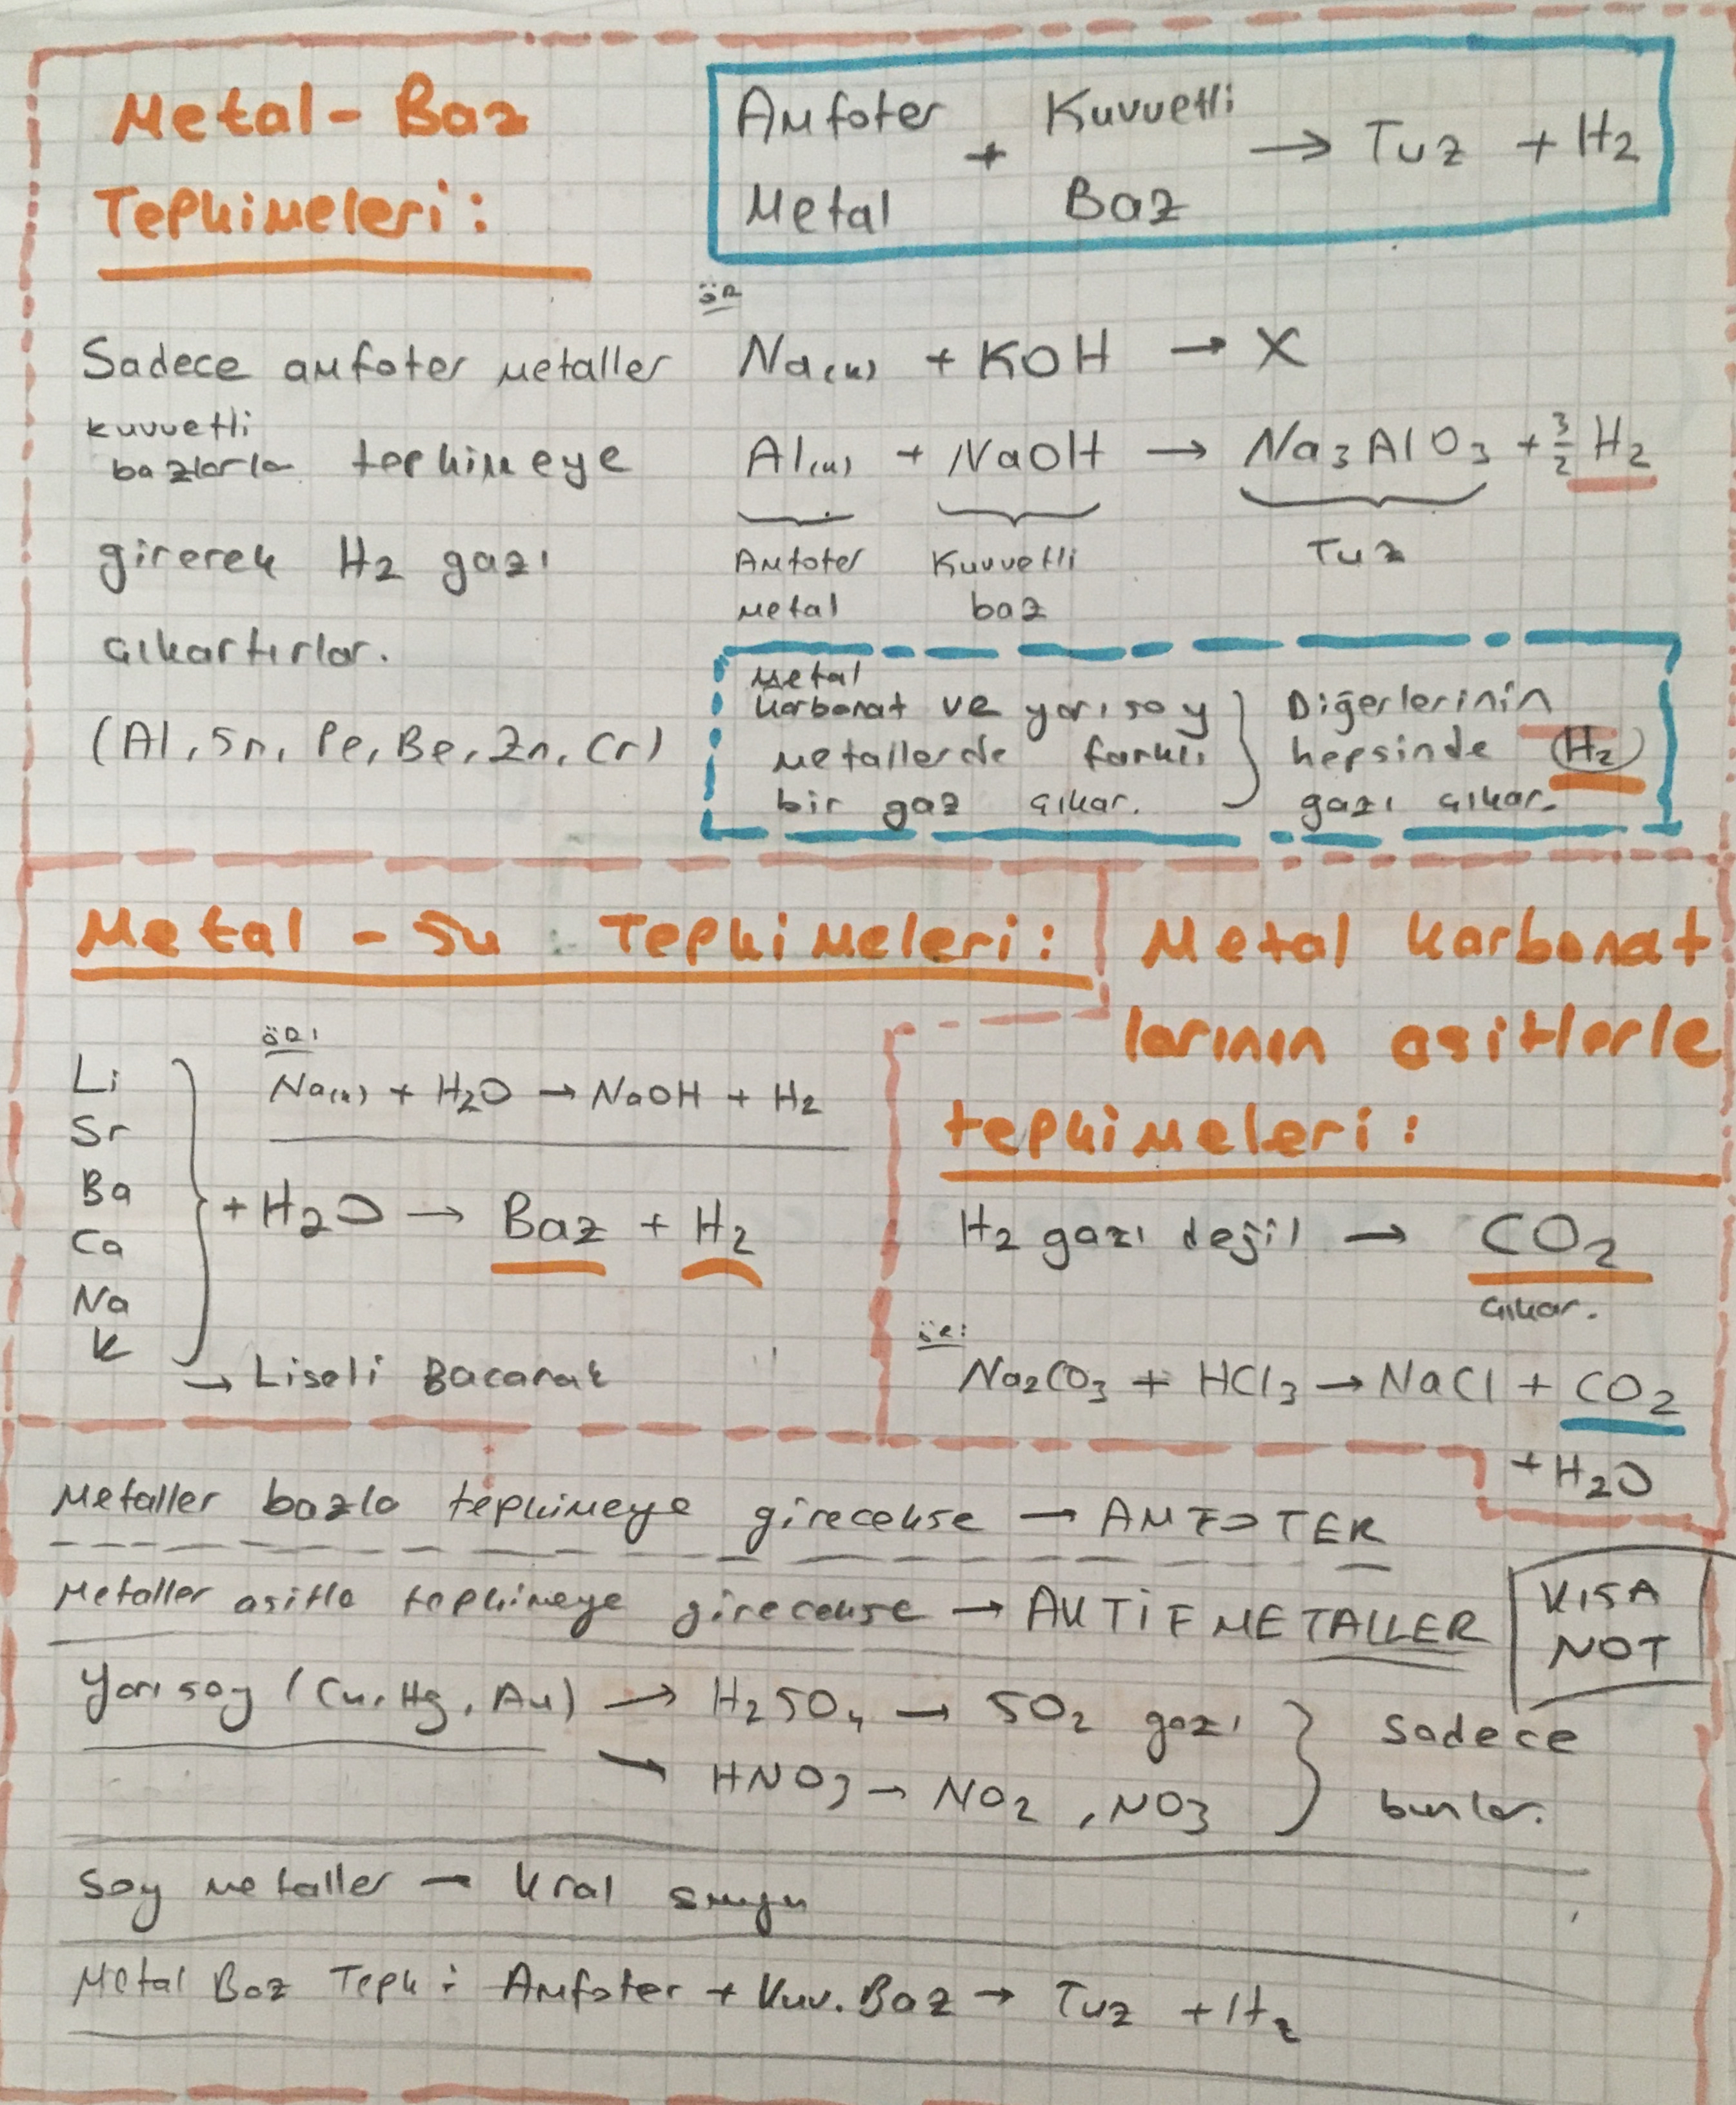 Metal - Baz
Tepkimeleri :
Amfoter + Kuvvetli → Tuz + H2
Metal Baz
Sadece amfoter metaller
kuvvetli
bazlarla tepkimeye
girerek H2 gazı
çıkartırlar.
(Al, Sn, Pe, Be, Zn, Cr)
ör
Na(k) + KOH → X
Al(k) + NaOH → Na3AlO3 + 3/2 H2
Amfoter Kuvvetli Tuz
metal baz
Metal
karbonat ve yarı soy } Diğerlerinin
metallerde farklı hepsinde H2
bir gaz çıkar. gazı çıkar.
Metal - Su Tepkimeleri :
ör:
Na(k) + H2O → NaOH + H2
Li
Sr
Ba
Ca
Na
K
+ H2O → Baz + H2
→ Liseli Bacanak
Metal karbonat
larının asitlerle
tepkimeleri :
H2 gazı değil → CO2
çıkar.
ör:
Na2CO3 + HCl3 → NaCl + CO2
+ H2O
Metaller bazla tepkimeye girecekse → AMFOTER
Metaller asitle tepkimeye girecekse → AKTİF METALLER
KISA
NOT
Yarı soy (Cu, Hg, Au) → H2SO4 → SO2 gazı } Sadece
→ HNO3 → NO2, NO3 bunlar.
Soy metaller → kral suyu
Metal Baz Tepk : Amfoter + Kuv. Baz → Tuz + H2